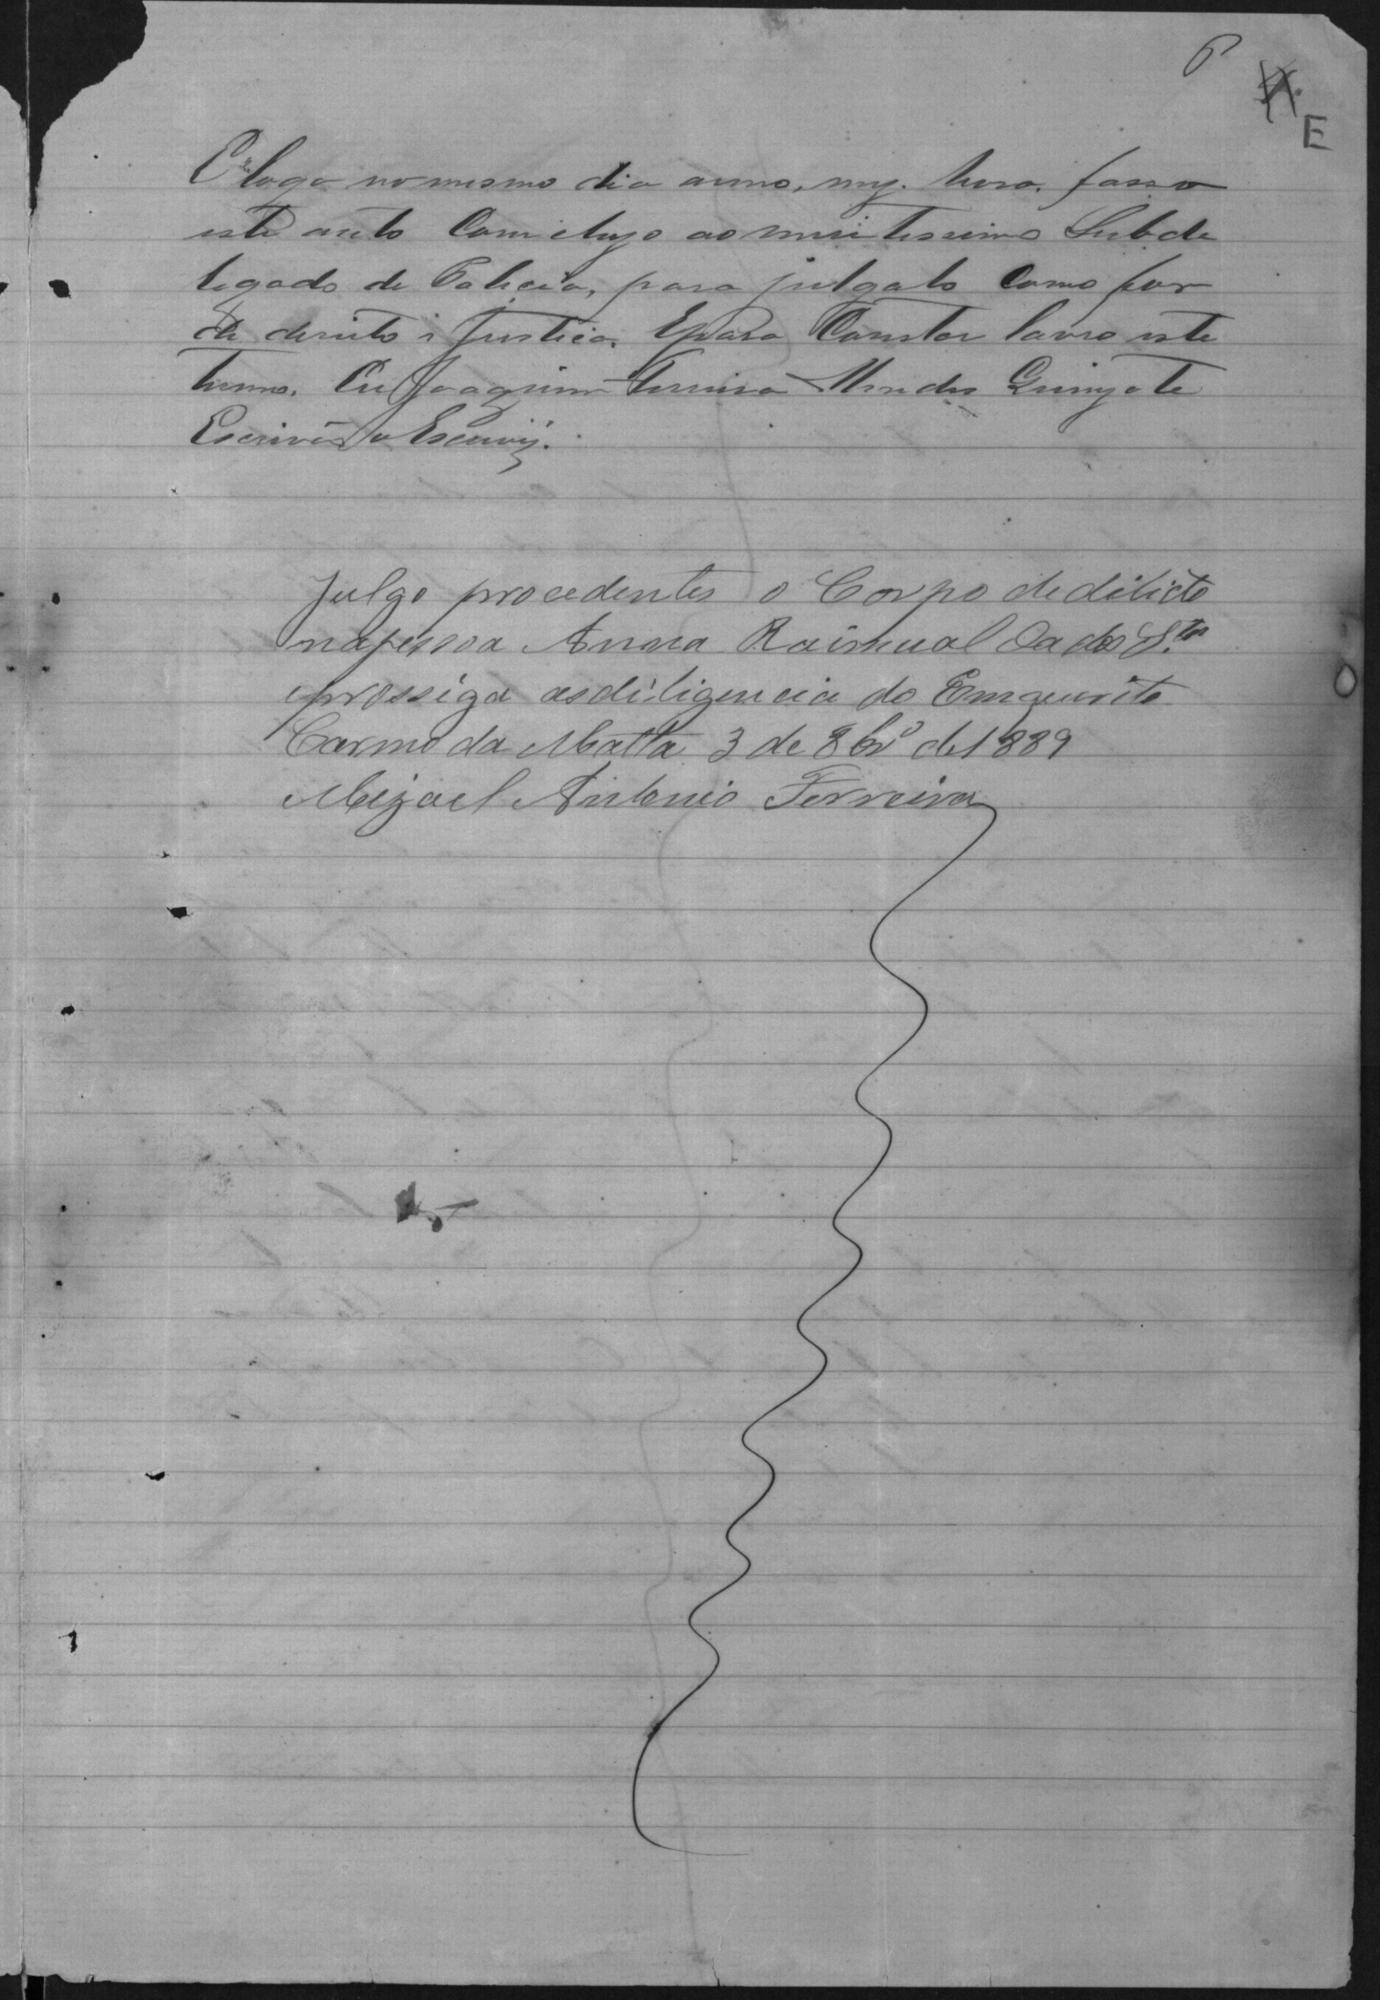 6
E
E logo no mesmo dia anno, mez. hora. fasso
este auto Comclugo ao miritissimo Subde
legado de Policia, para julgalo Como for
de dereito i Justica. Epara Constar lavro este
termo. Eu Joaquim Ferreira Mendes
Escrivão o Escrivi.
Julgo procedentes o Corpo de dilicto
na pessoa Anna Raimual da dos S.tos
prossiga as diligencia do Emquerito
Carmo da Matta 3 de 8br.o de 1889
Mizael Antonio Ferreira